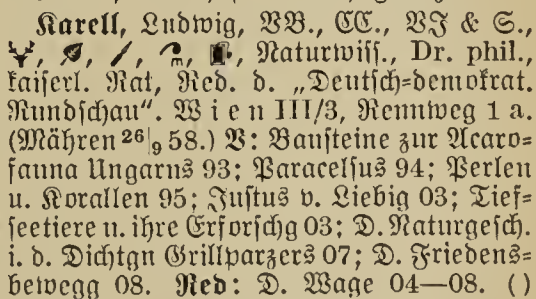 Karell, Ludwig, VB., CC., VJ & S.,
Naturwiss., Dr. phil.,
kaiserl. Rat, Red. d. „Deutsch=demokrat.
Rundschau“. Wien III/3, Rennweg 1 a.
(Mähren 26|9 58.) V: Bausteine zur Acaro=
fauna Ungarns 93; Paracelsus 94; Perlen
u. Korallen 95; Justus v. Liebig 03; Tief=
seetiere u. ihre Erforschg 03; D. Naturgesch.
i. d. Dichtgn Grillparzers 07; D. Friedens=
bewegg 08. Red: D. Wage 04—08. ()